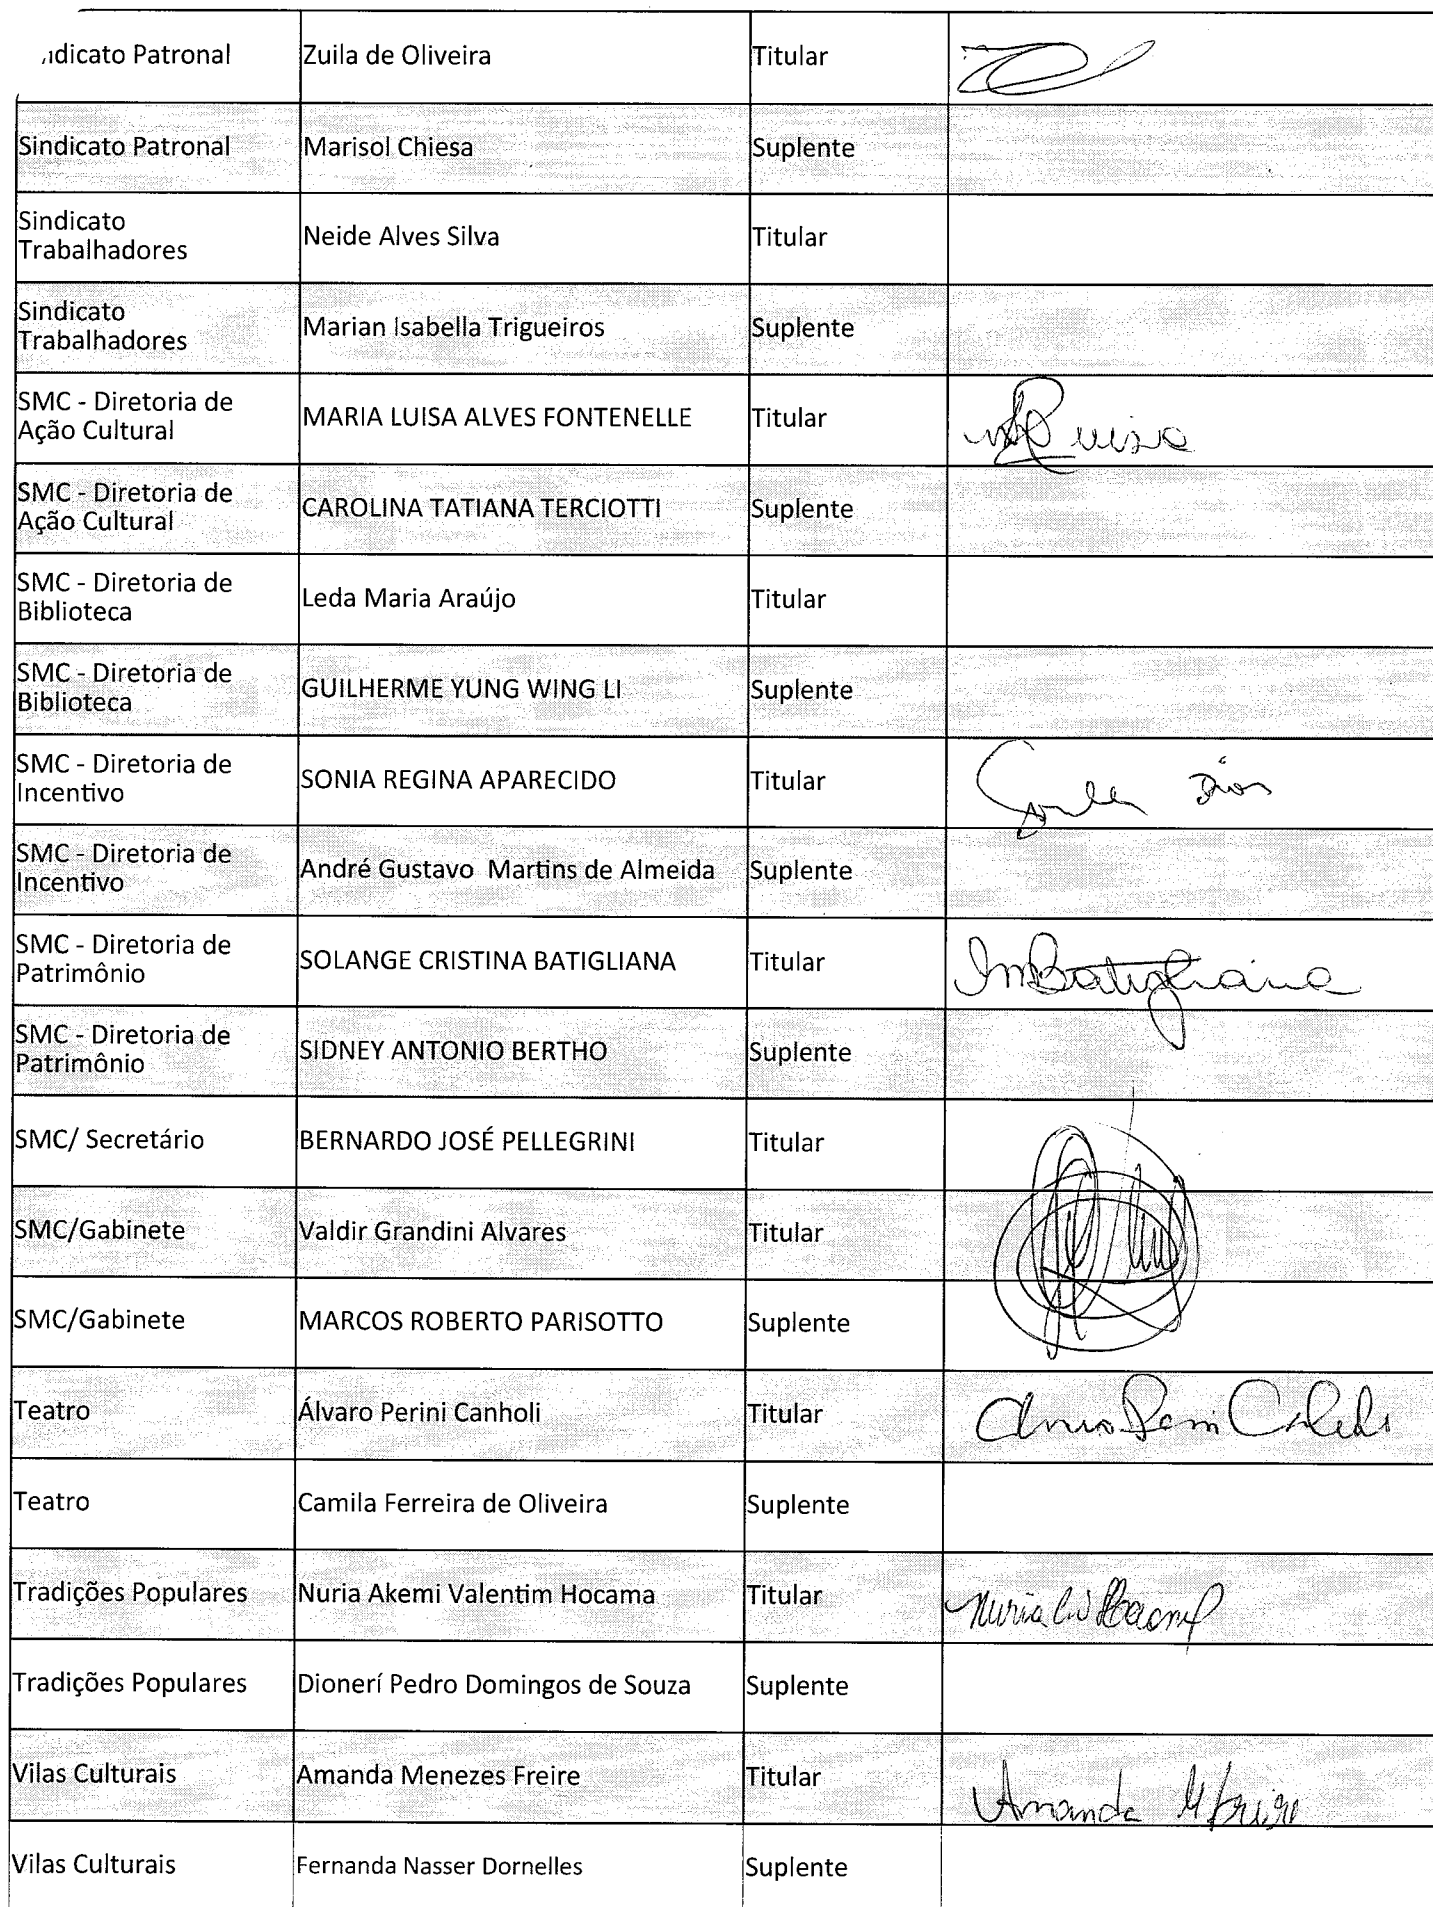 dicato Patronal Zuila de Oliveira Titular
Sindicato Patronal Marisol Chiesa Suplente
Sindicato
Trabalhadores Neide Alves Silva Titular
Sindicato
Trabalhadores Marian Isabella Trigueiros Suplente
SMC - Diretoria de
Ação Cultural MARIA LUISA ALVES FONTENELLE Titular Luisa
SMC - Diretoria de
Ação Cultural CAROLINA TATIANA TERCIOTTI Suplente
SMC - Diretoria de
Biblioteca Leda Maria Araújo Titular
SMC - Diretoria de
Biblioteca GUILHERME YUNG WING LI Suplente
SMC - Diretoria de
Incentivo SONIA REGINA APARECIDO Titular
SMC - Diretoria de
Incentivo André Gustavo Martins de Almeida Suplente
SMC - Diretoria de
Patrimônio SOLANGE CRISTINA BATIGLIANA Titular Batigliana
SMC - Diretoria de
Patrimônio SIDNEY ANTONIO BERTHO Suplente
SMC/ Secretário BERNARDO JOSÉ PELLEGRINI Titular
SMC/Gabinete Valdir Grandini Alvares Titular
SMC/Gabinete MARCOS ROBERTO PARISOTTO Suplente
Teatro Álvaro Perini Canholi Titular
Teatro Camila Ferreira de Oliveira Suplente
Tradições Populares Nuria Akemi Valentim Hocama Titular Nuria
Tradições Populares Dionerí Pedro Domingos de Souza Suplente
Vilas Culturais Amanda Menezes Freire Titular Amanda M Freire
Vilas Culturais Fernanda Nasser Dornelles Suplente